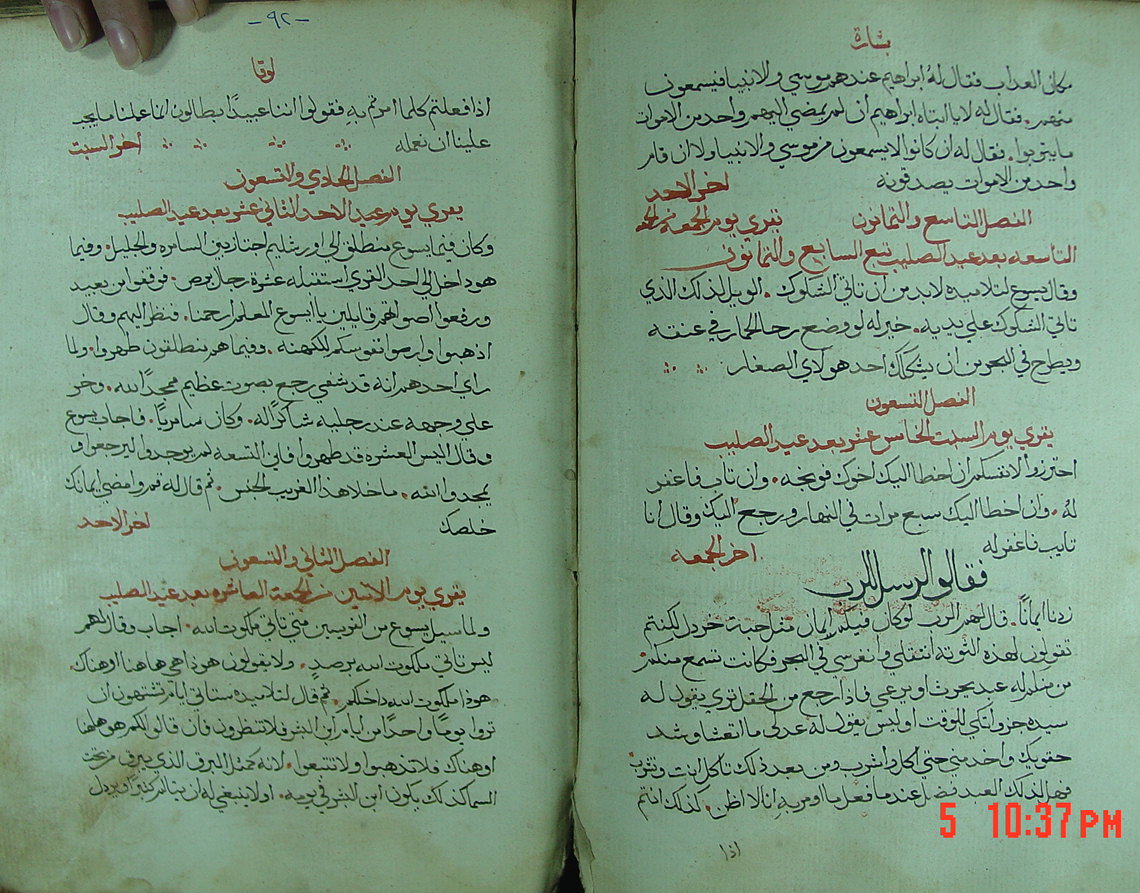 بشارة
مكان العداب فقال له ابراهيم عندهم موسي والانبيا فيسمعون
منهم. فقال له لا يا ابتاه ابراهيم ان لم يمضي اليهم واحد من الاموات
ما يتوبوا. فقال له ان كانوا لا يسمعون من موسي والانبيا ولا ان قام
واحد من الاموات يصدقونه اخر الاحد
الفصل التاسع والثمانون تقري يوم الجمعه
التاسعه بعد عيد الصليب تبع السابع والثمانون
وقال يسوع لتلاميده لابد من ان تاتي الشكوك. الويل لذلك الذي
تاتي الشكوك علي يديه. خير له لو وضع رحا الحمار في عنقه
ويطرح في البحر من ان يشكك احد هولاي الصغار
الفصل التسعون
يقري يوم السبت الخامس عشر بعد عيد الصليب
احترزوا لانفسكم ان اخطا اليك اخوك فوبخه. وان تاب فاغفر
له. وان اخطا اليك سبع مرات في النهار ورجع اليك وقال انا
تايب فاغفر له اخر الجمعه
فقالو الرسل للرب
زدنا ايمانًا. قال لهم الرب لو كان فيكم ايمان مثل حبت خردل لكنتم
تقولون لهذه التوته انتقلي وانغرسي في البحر فكانت تسمع منكم
من منكم له عبد يحرث او يرعي فاذا رجع من الحقل تري يقول له
سيده جز واتكي للوقت اوليس يقول له عد لي ما اتعشا وشد
حقويك واخدمني حتي اكل واشرب ومن بعد ذلك تاكل انت وتشرب
فهل لذلك العبد فضل عندما فعل ما اومر به انا لا اظن. كذلك انتم
اذا
-٩٢-
لوقا
اذا فعلتم كلما امرتم به فقولوا اننا عبيدًا بطالون انما عملنا ما يجب
علينا ان نعمله اخر السبت
الفصل الحادي والتسعون
يقري يوم عيد الاحد الثاني عشر بعد عيد الصليب
وكان فيما يسوع منطلق الي اورشليم اجتاز بين السامره والجليل. وفيما
هو داخل الي احد القري استقبله عشرة رجال برص. فوقفوا من بعيد
ورفعوا اصواتهم قايلين يا ايسوع المعلم ارحمنا. فنظر اليهم وقال
اذهبوا وارو انفوسكم للكهنه. وفيما هم منطلقون طهروا. ولما
راي احدهم انه قد شفي رجع بصوت عظيم ممجدًا الله. وخر
علي وجهه عند رجليه شاكرًا له. وكان سامريًا. فاجاب يسوع
وقال اليس العشره قد طهروا فاين التسعه لم يوجدوا ليرجعوا و
يمجدوا الله. ما خلا هذا الغريب الجنس. ثم قال له قم وامضي ايمانك
خلصك اخر الاحد
الفصل الثاني والتسعون
يقري يوم الاثنين من الجمعة العاشره بعد عيد الصليب
ولما سيل يسوع من الفريسين متي تاتي ملكوت الله. اجاب وقال لهم
ليس تاتي ملكوت الله برصدٍ. ولا يقولون هوذا هي هاهنا او هناك.
هوذا ملكوت الله داخلكم. ثم قال لتلاميده ستاتي ايام تشتهون ان
تروا يومًا واحدًا من ايام ابن البشر فلا تنظرون فان قالو لكم هوهاهنا
او هناك فلا تذهبوا ولا تتبعوا. لانه كمثل البرق الذي يبرق من تحت
السما كذلك يكون ابن البشر في يومه. اولا ينبغي له ان يتالم كثيرًا ويرذل
5 10:37 PM